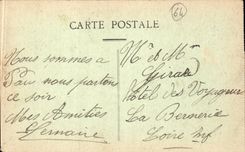 CARTE POSTALE
64
Nous sommes a
Pau nous partons
ce soir
Mes Amities
Germaine
Mr et Mme
Girau
Hotel des Voyageur
La Bernerie
Loire Inf